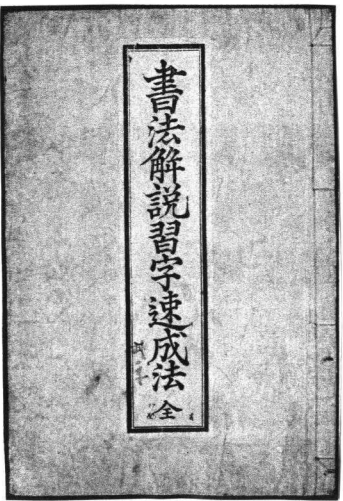 書法解説習字速成法 全